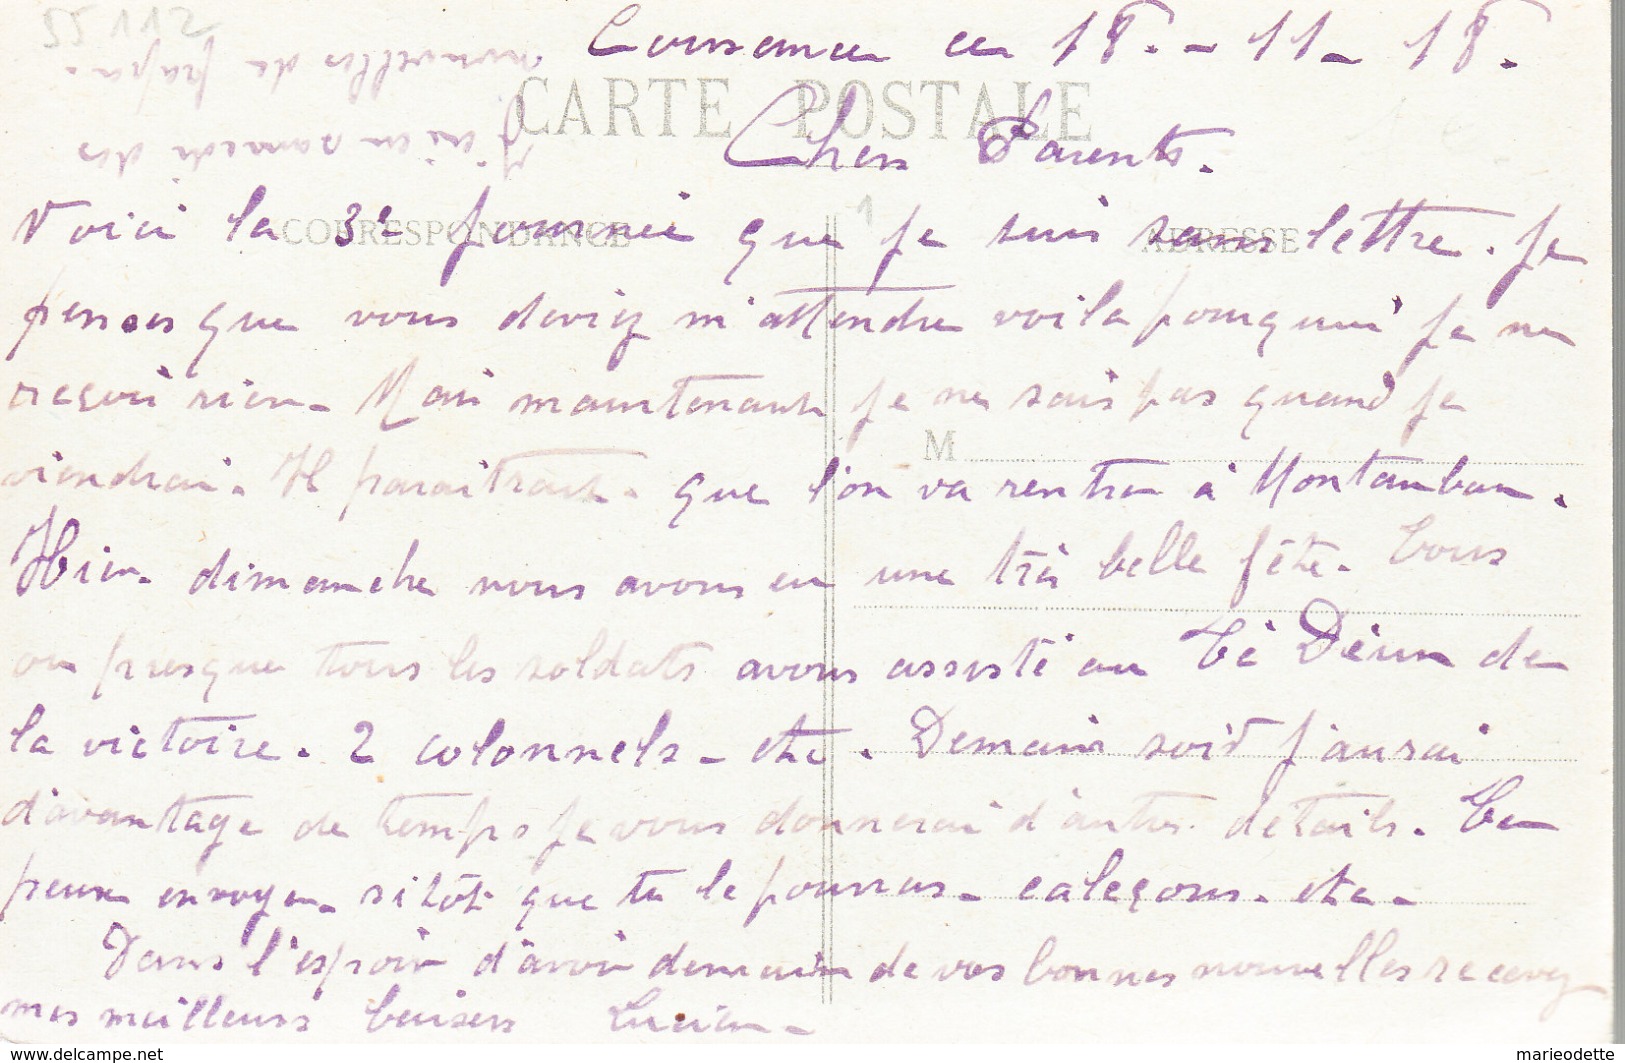 55112
Cousance ce 18.-11-18.
nouvelles de papa.
CARTE POSTALE
J'ai eu samedi des
Chers Parents.
Voici la 3e journée que je suis sans lettre. Je
CORRESPONDANCE
1
ADRESSE
penses que vous deviez m'attendre voila pourquoi je ne
reçoi rien. Mais maintenant je ne sais pas quand je
M
viendrai. Il paraitrait. que l'on va rentrer à Montauban.
Hier. dimanche nous avons eu une très belle fête. Tous
ou presque tous les soldats avons assisté au Té Déum de
la victoire. 2 colonnels - etc. Demain soir j'aurai
d'avantage de temps je vous donnerai d'autres détails. Tu
peux envoyer. sitôt que tu le pourras - caleçons. etc -
Dans l'espoir d'avoir demain de vos bonnes nouvelles recevez
mes meilleurs baisers Lucien -
www.delcampe.net
marieodette